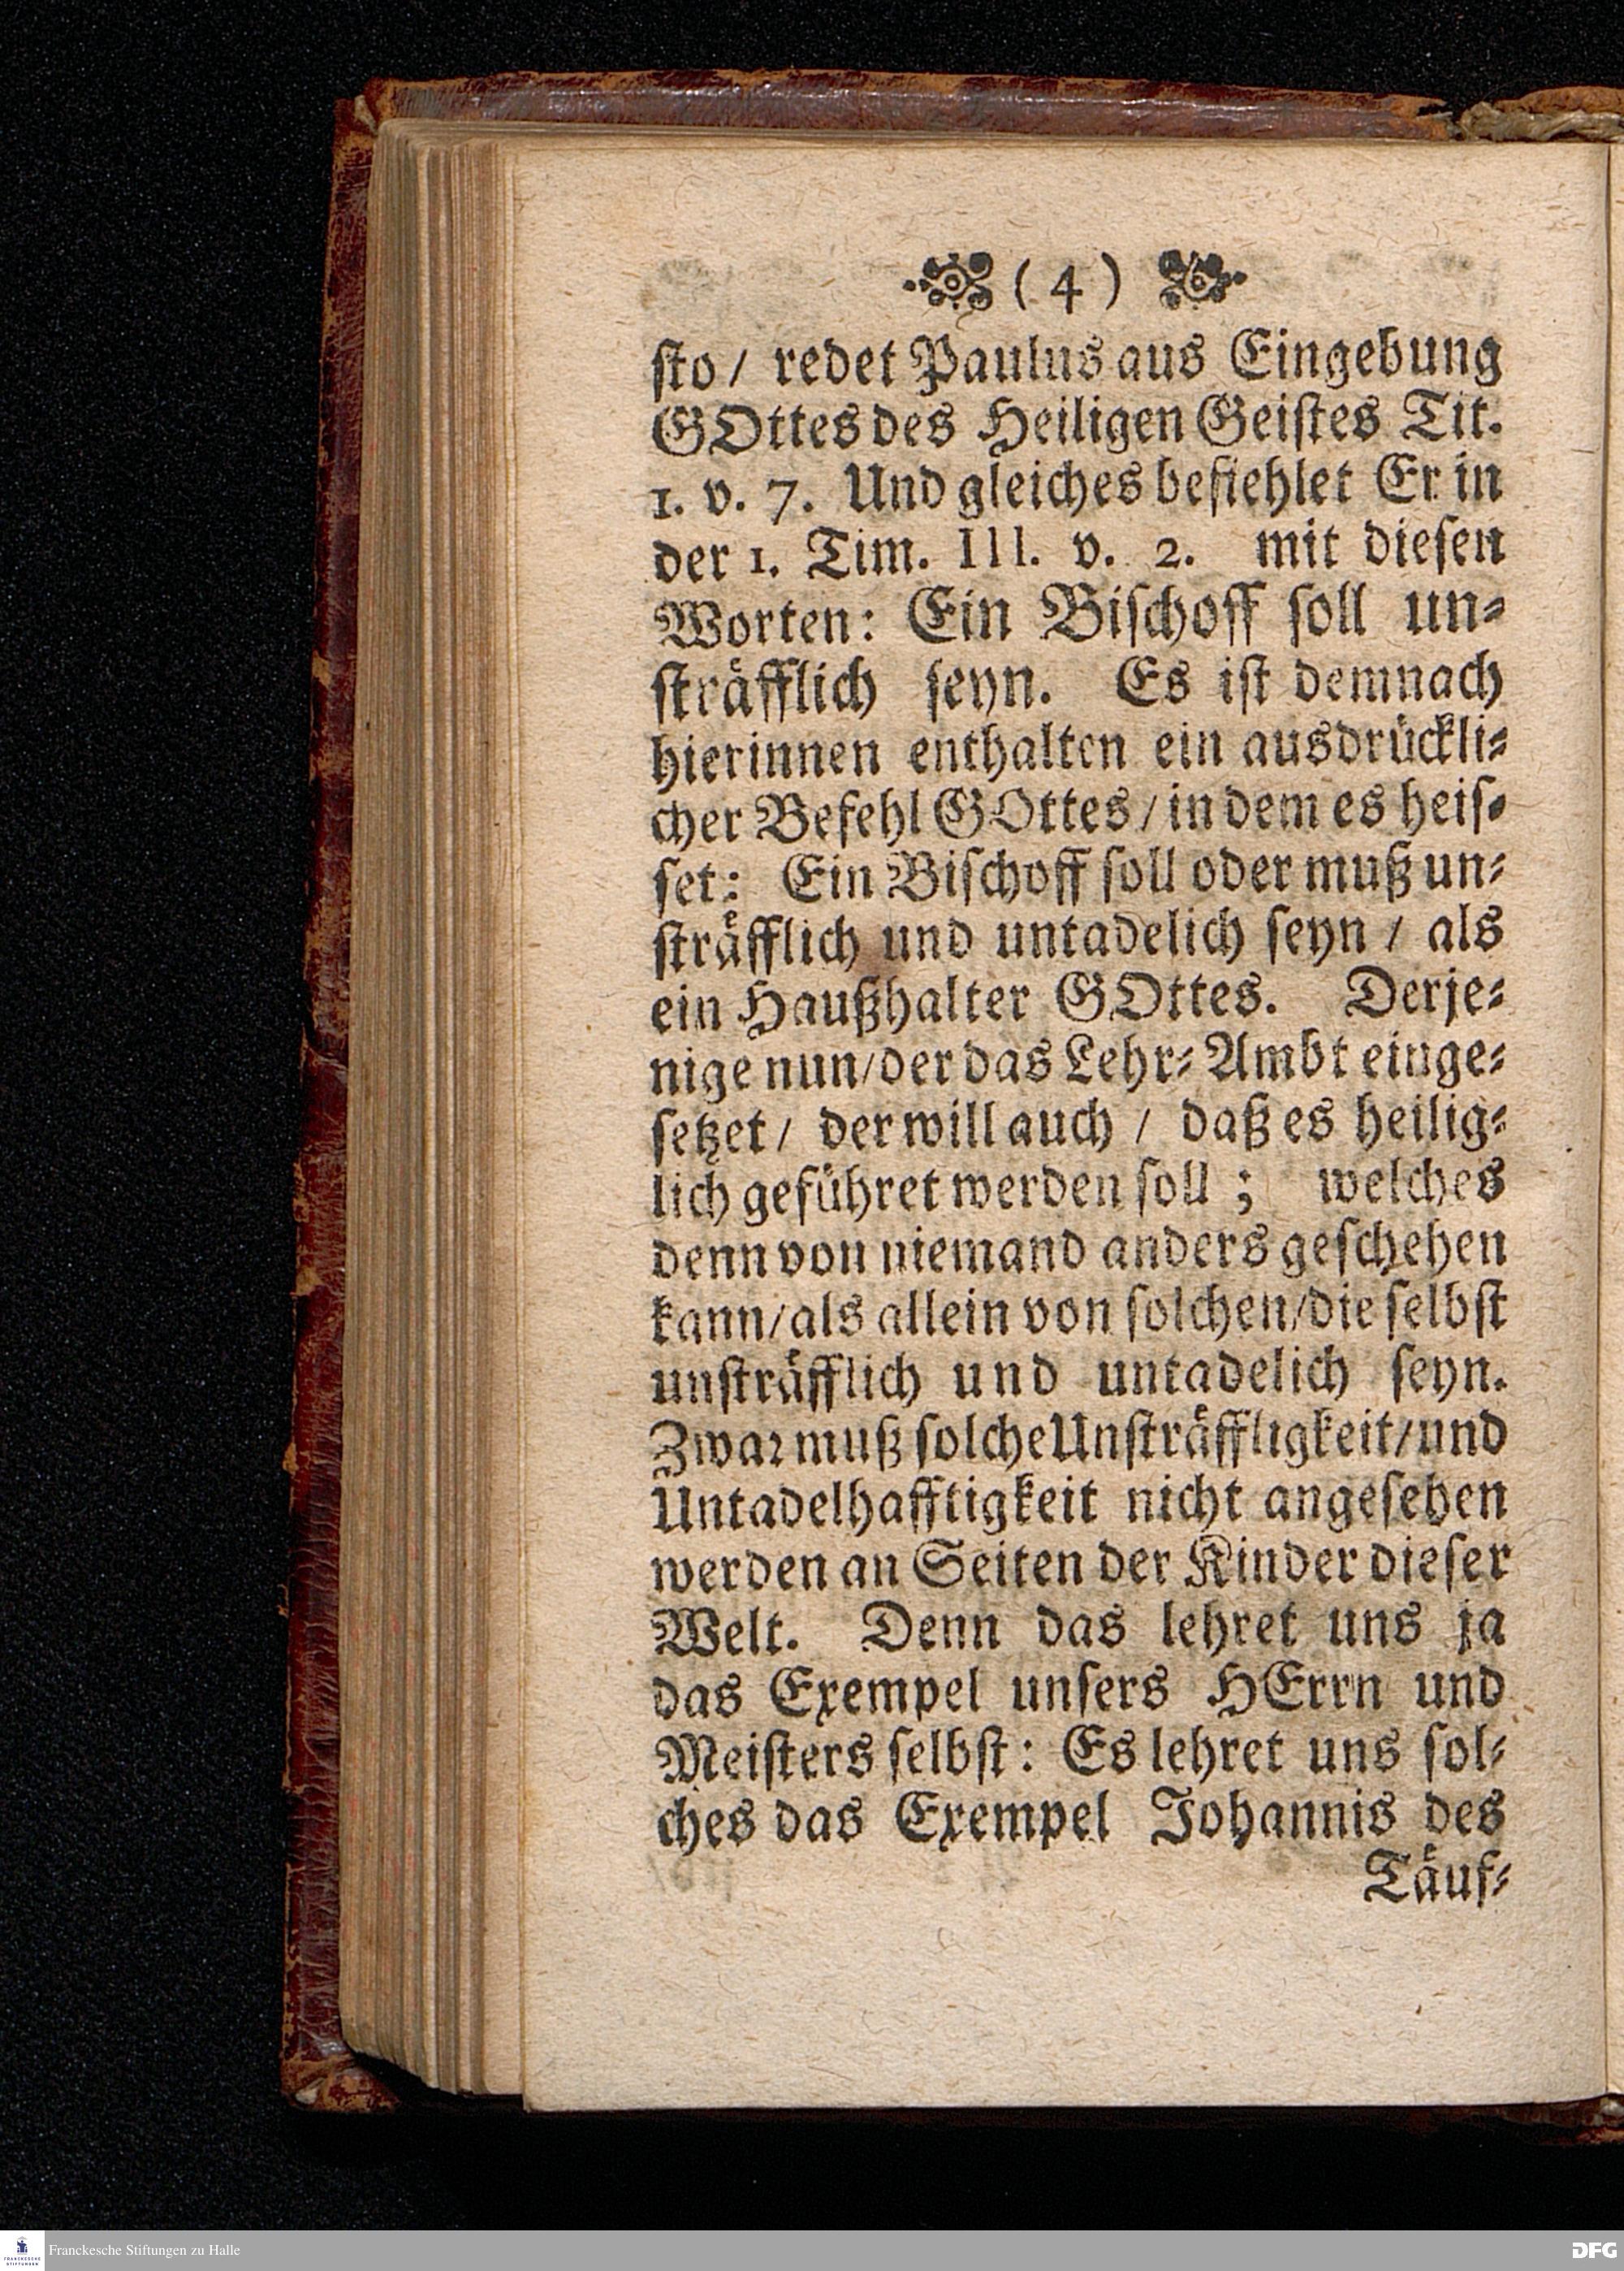 ( 4 )
ſto / redet Paulus aus Eingebung
GOttes des Heiligen Geiſtes Tit.
1. v. 7. Und gleiches befiehlet Er in
der 1. Tim. III. v. 2. mit dieſen
Worten: Ein Biſchoff ſoll un-
ſträfflich ſeyn. Es iſt demnach
hierinnen enthalten ein ausdrückli-
cher Befehl GOttes / in dem es heiſ-
ſet: Ein Biſchoff ſoll oder muß un-
ſträfflich und untadelich ſeyn / als
ein Haußhalter GOttes. Derje-
nige nun / der das Lehr-Ambt einge-
ſetzet / der will auch / daß es heilig-
lich geführet werden ſoll ; welches
denn von niemand anders geſchehen
kann / als allein von ſolchen / die ſelbſt
unſträfflich und untadelich ſeyn.
Zwar muß ſolche Unſträffligkeit / und
Untadelhafftigkeit nicht angeſehen
werden an Seiten der Kinder dieſer
Welt. Denn das lehret uns ja
das Exempel unſers HErrn und
Meiſters ſelbſt: Es lehret uns ſol-
ches das Exempel Johannis des
Täuf-
FRANCKESCHE STIFTUNGEN
Franckesche Stiftungen zu Halle
DFG